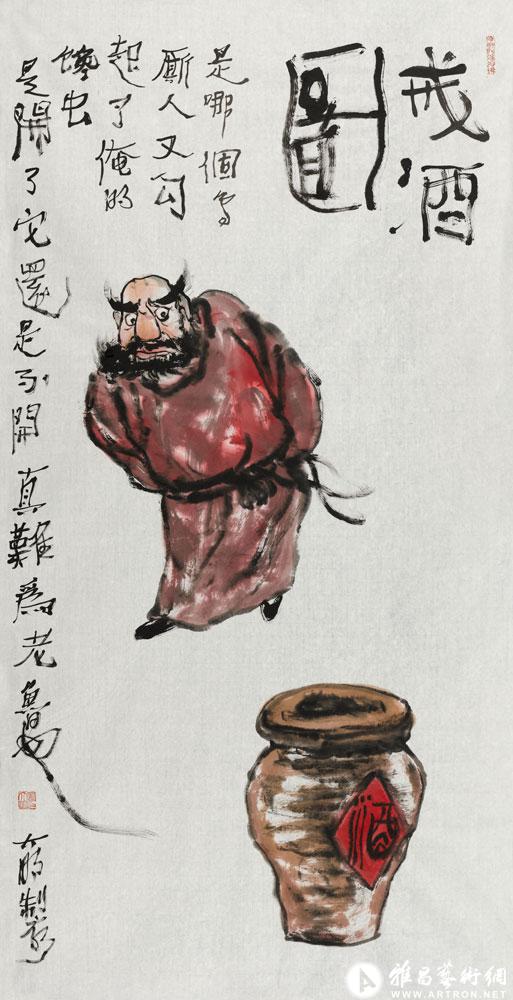 戒酒
圖
是哪個鸟
厮人又勾
起了俺的
馋虫
是開了它還是不開真難爲老魯
酒
雅昌藝術網
WWW.ARTRON.NET